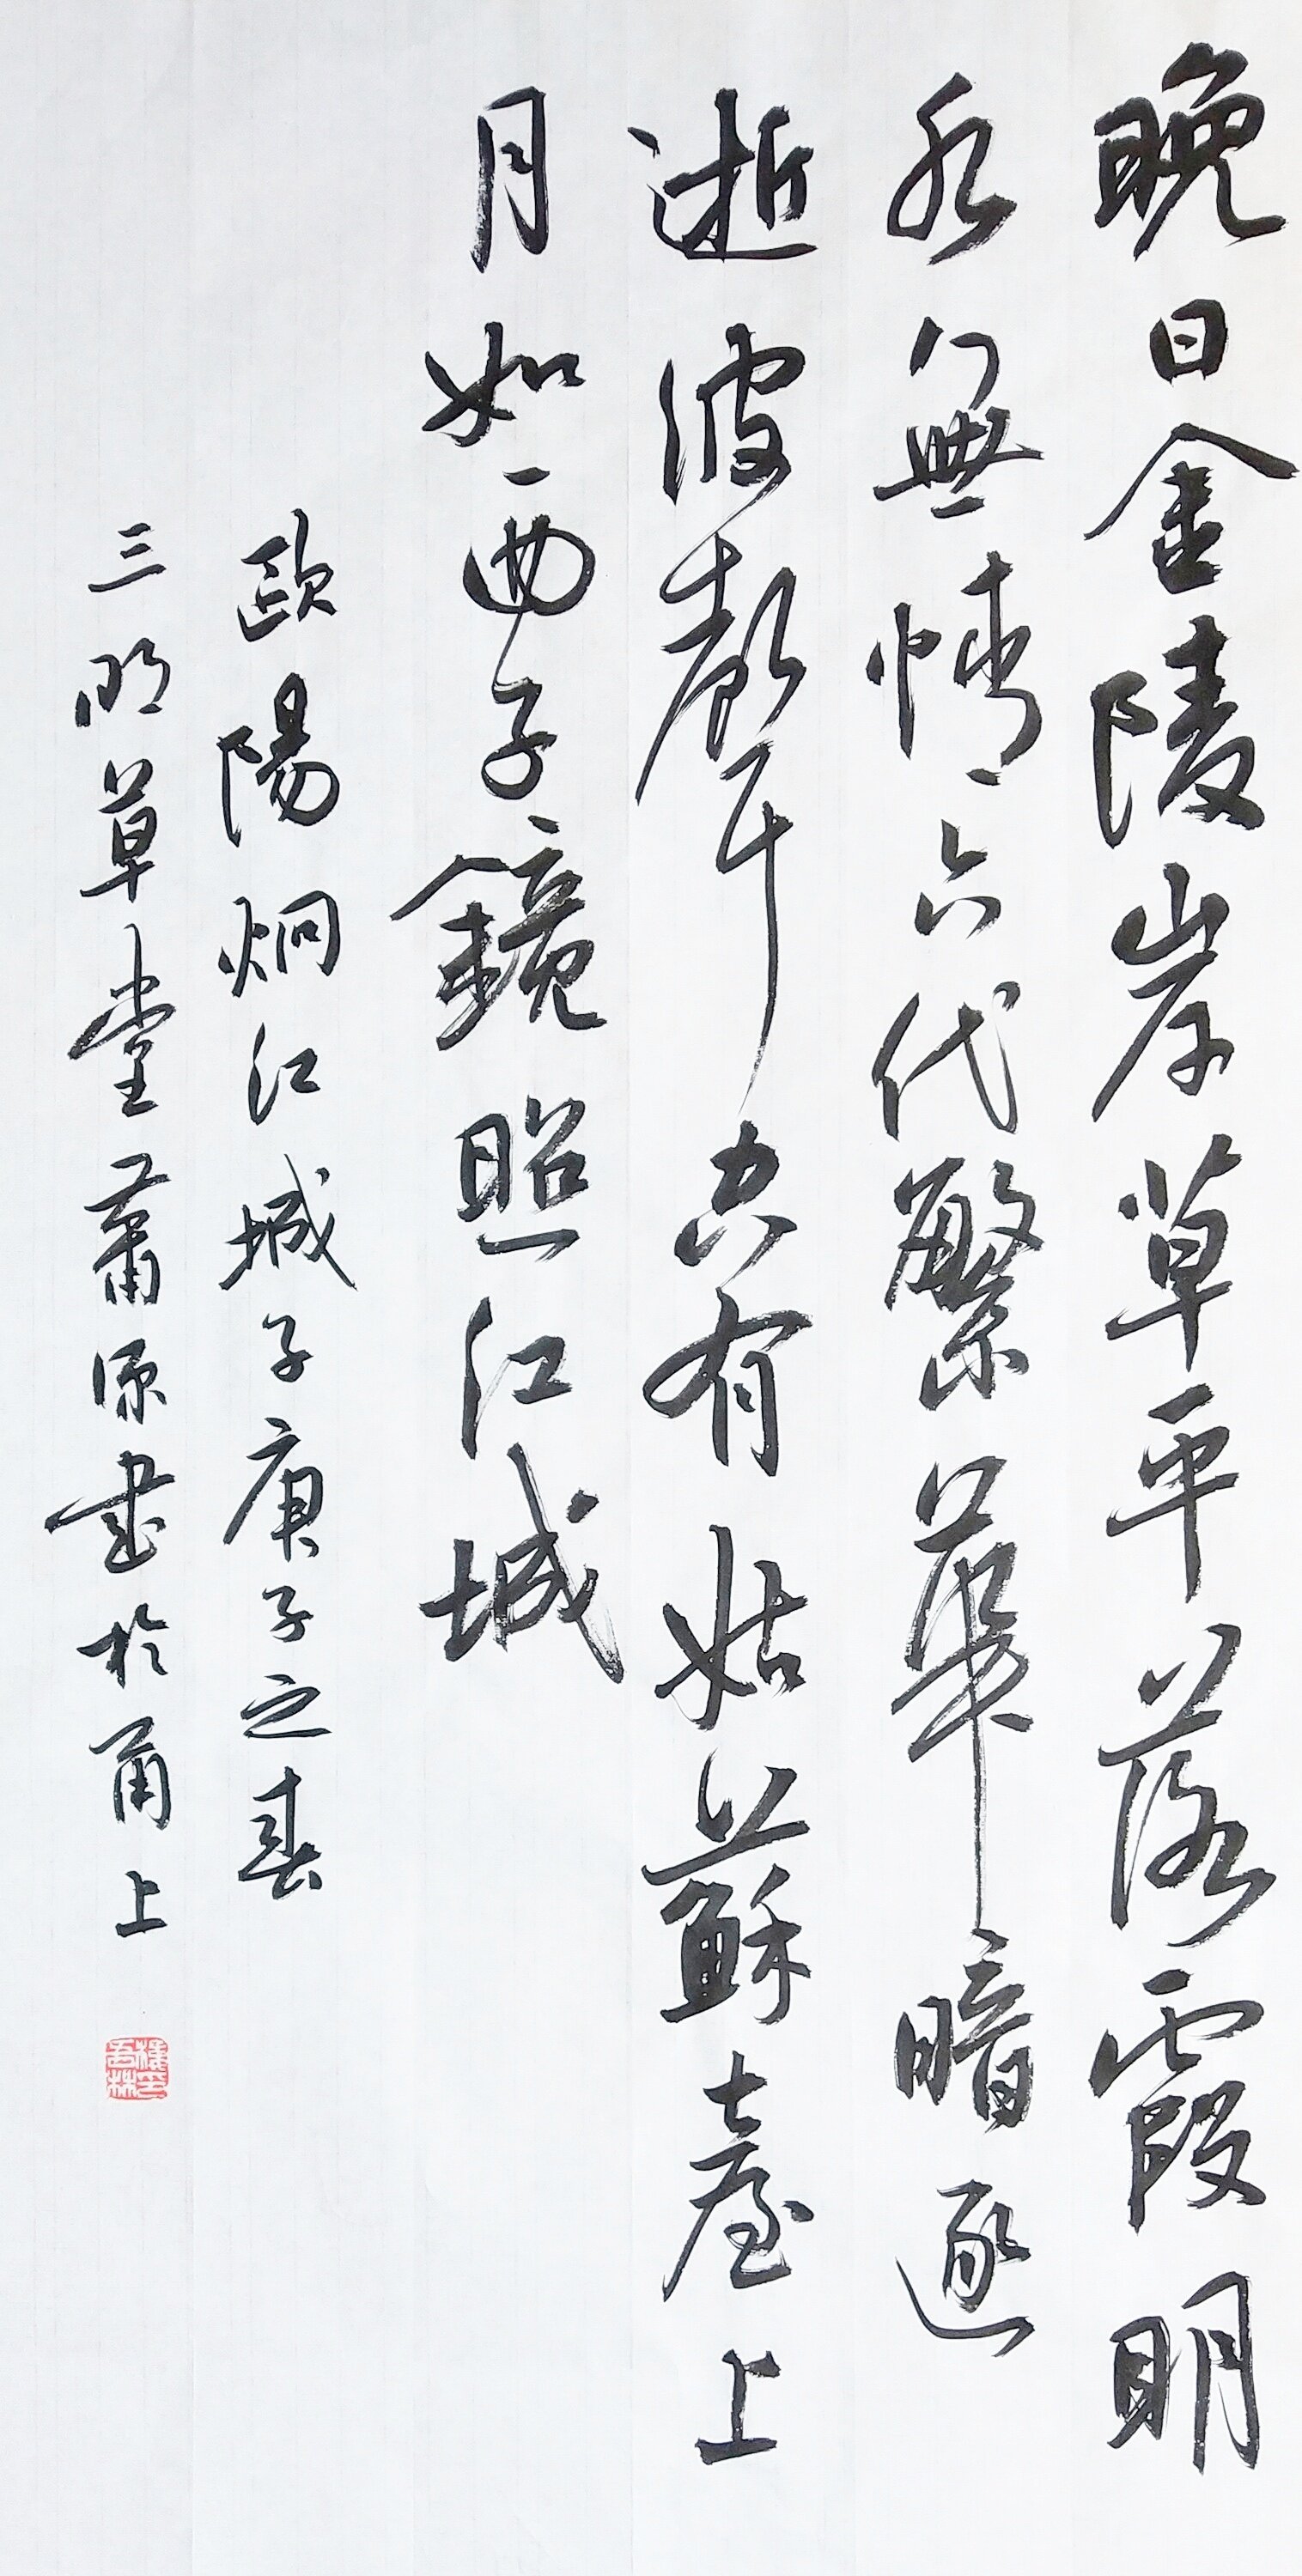 晚日金陵岸草平落霞明
水無情六代繁華暗逐
逝波聲空有姑蘇臺上
月如西子鏡照江城
歐陽炯江城子庚子之春
三明草堂蕭原書於甬上